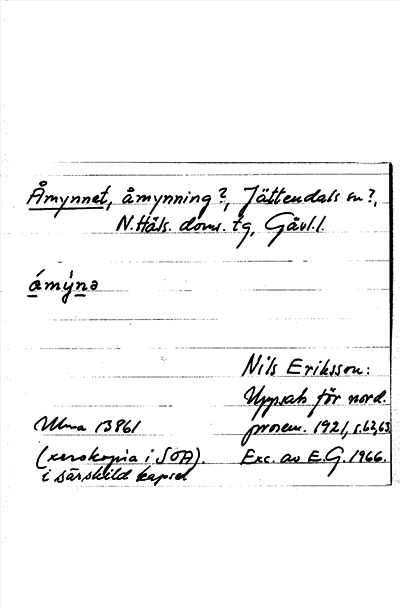 Åmynnet, åmynning?, Jättendals sn?,
N.Häls. doms. tg, Gävl.l.
ámýnə
Nils Eriksson:
Uppsats för nord.
Ulma 13861
prosem. 1921, s.62,63.
(xerokopia i SOA).
Exc. av E.G. 1966.
i särskild kapsel